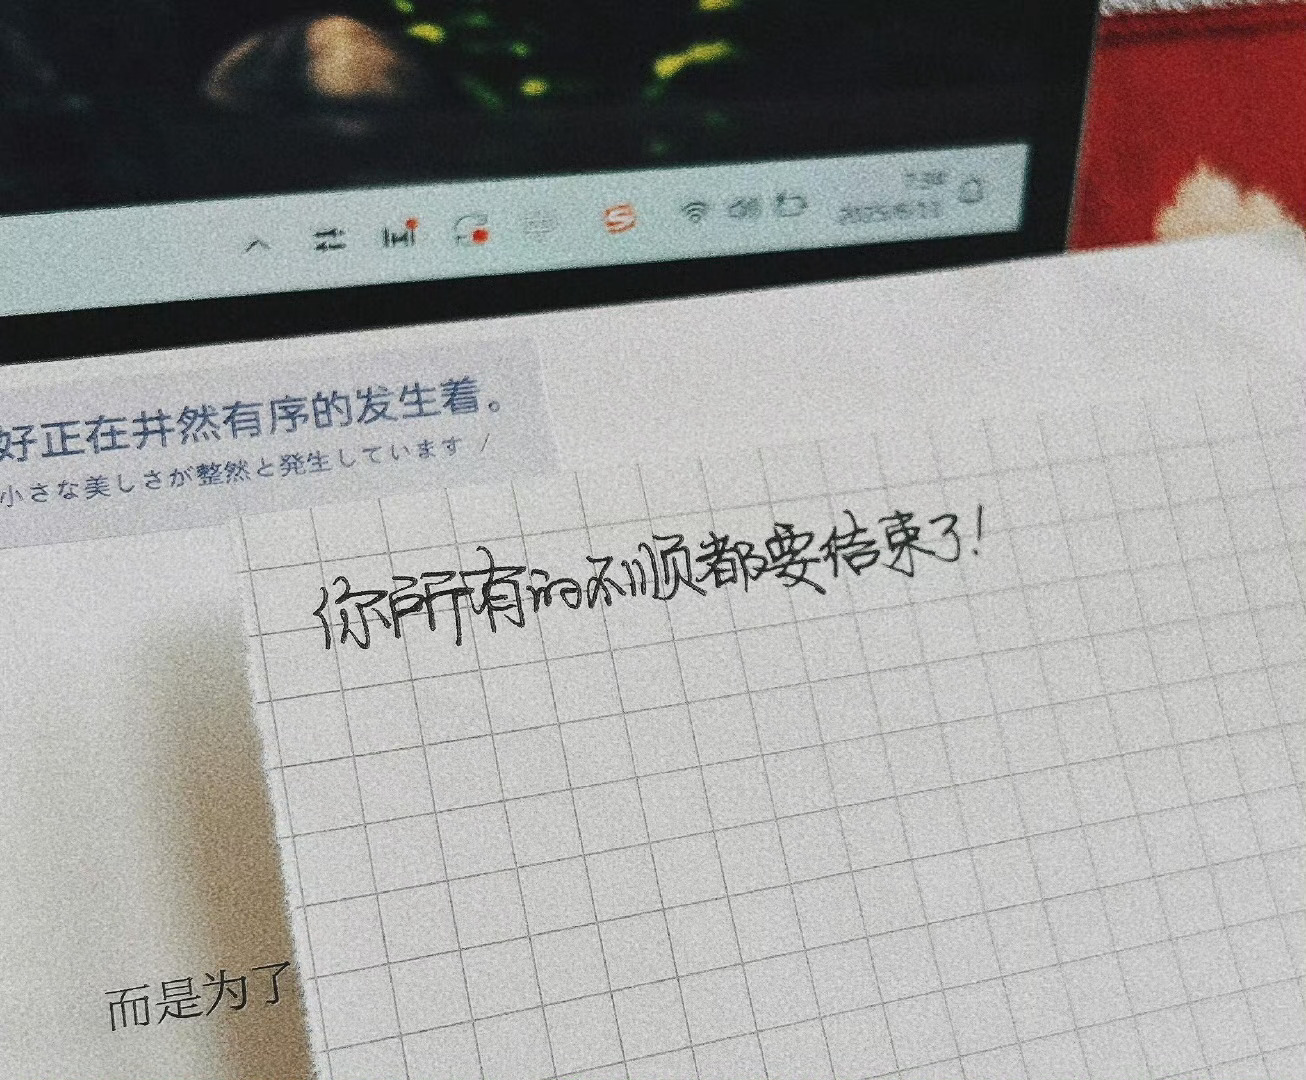 好正在井然有序的发生着。
小さな美しさが整然と発生しています /
你所有的不顺都要结束了!
而是为了